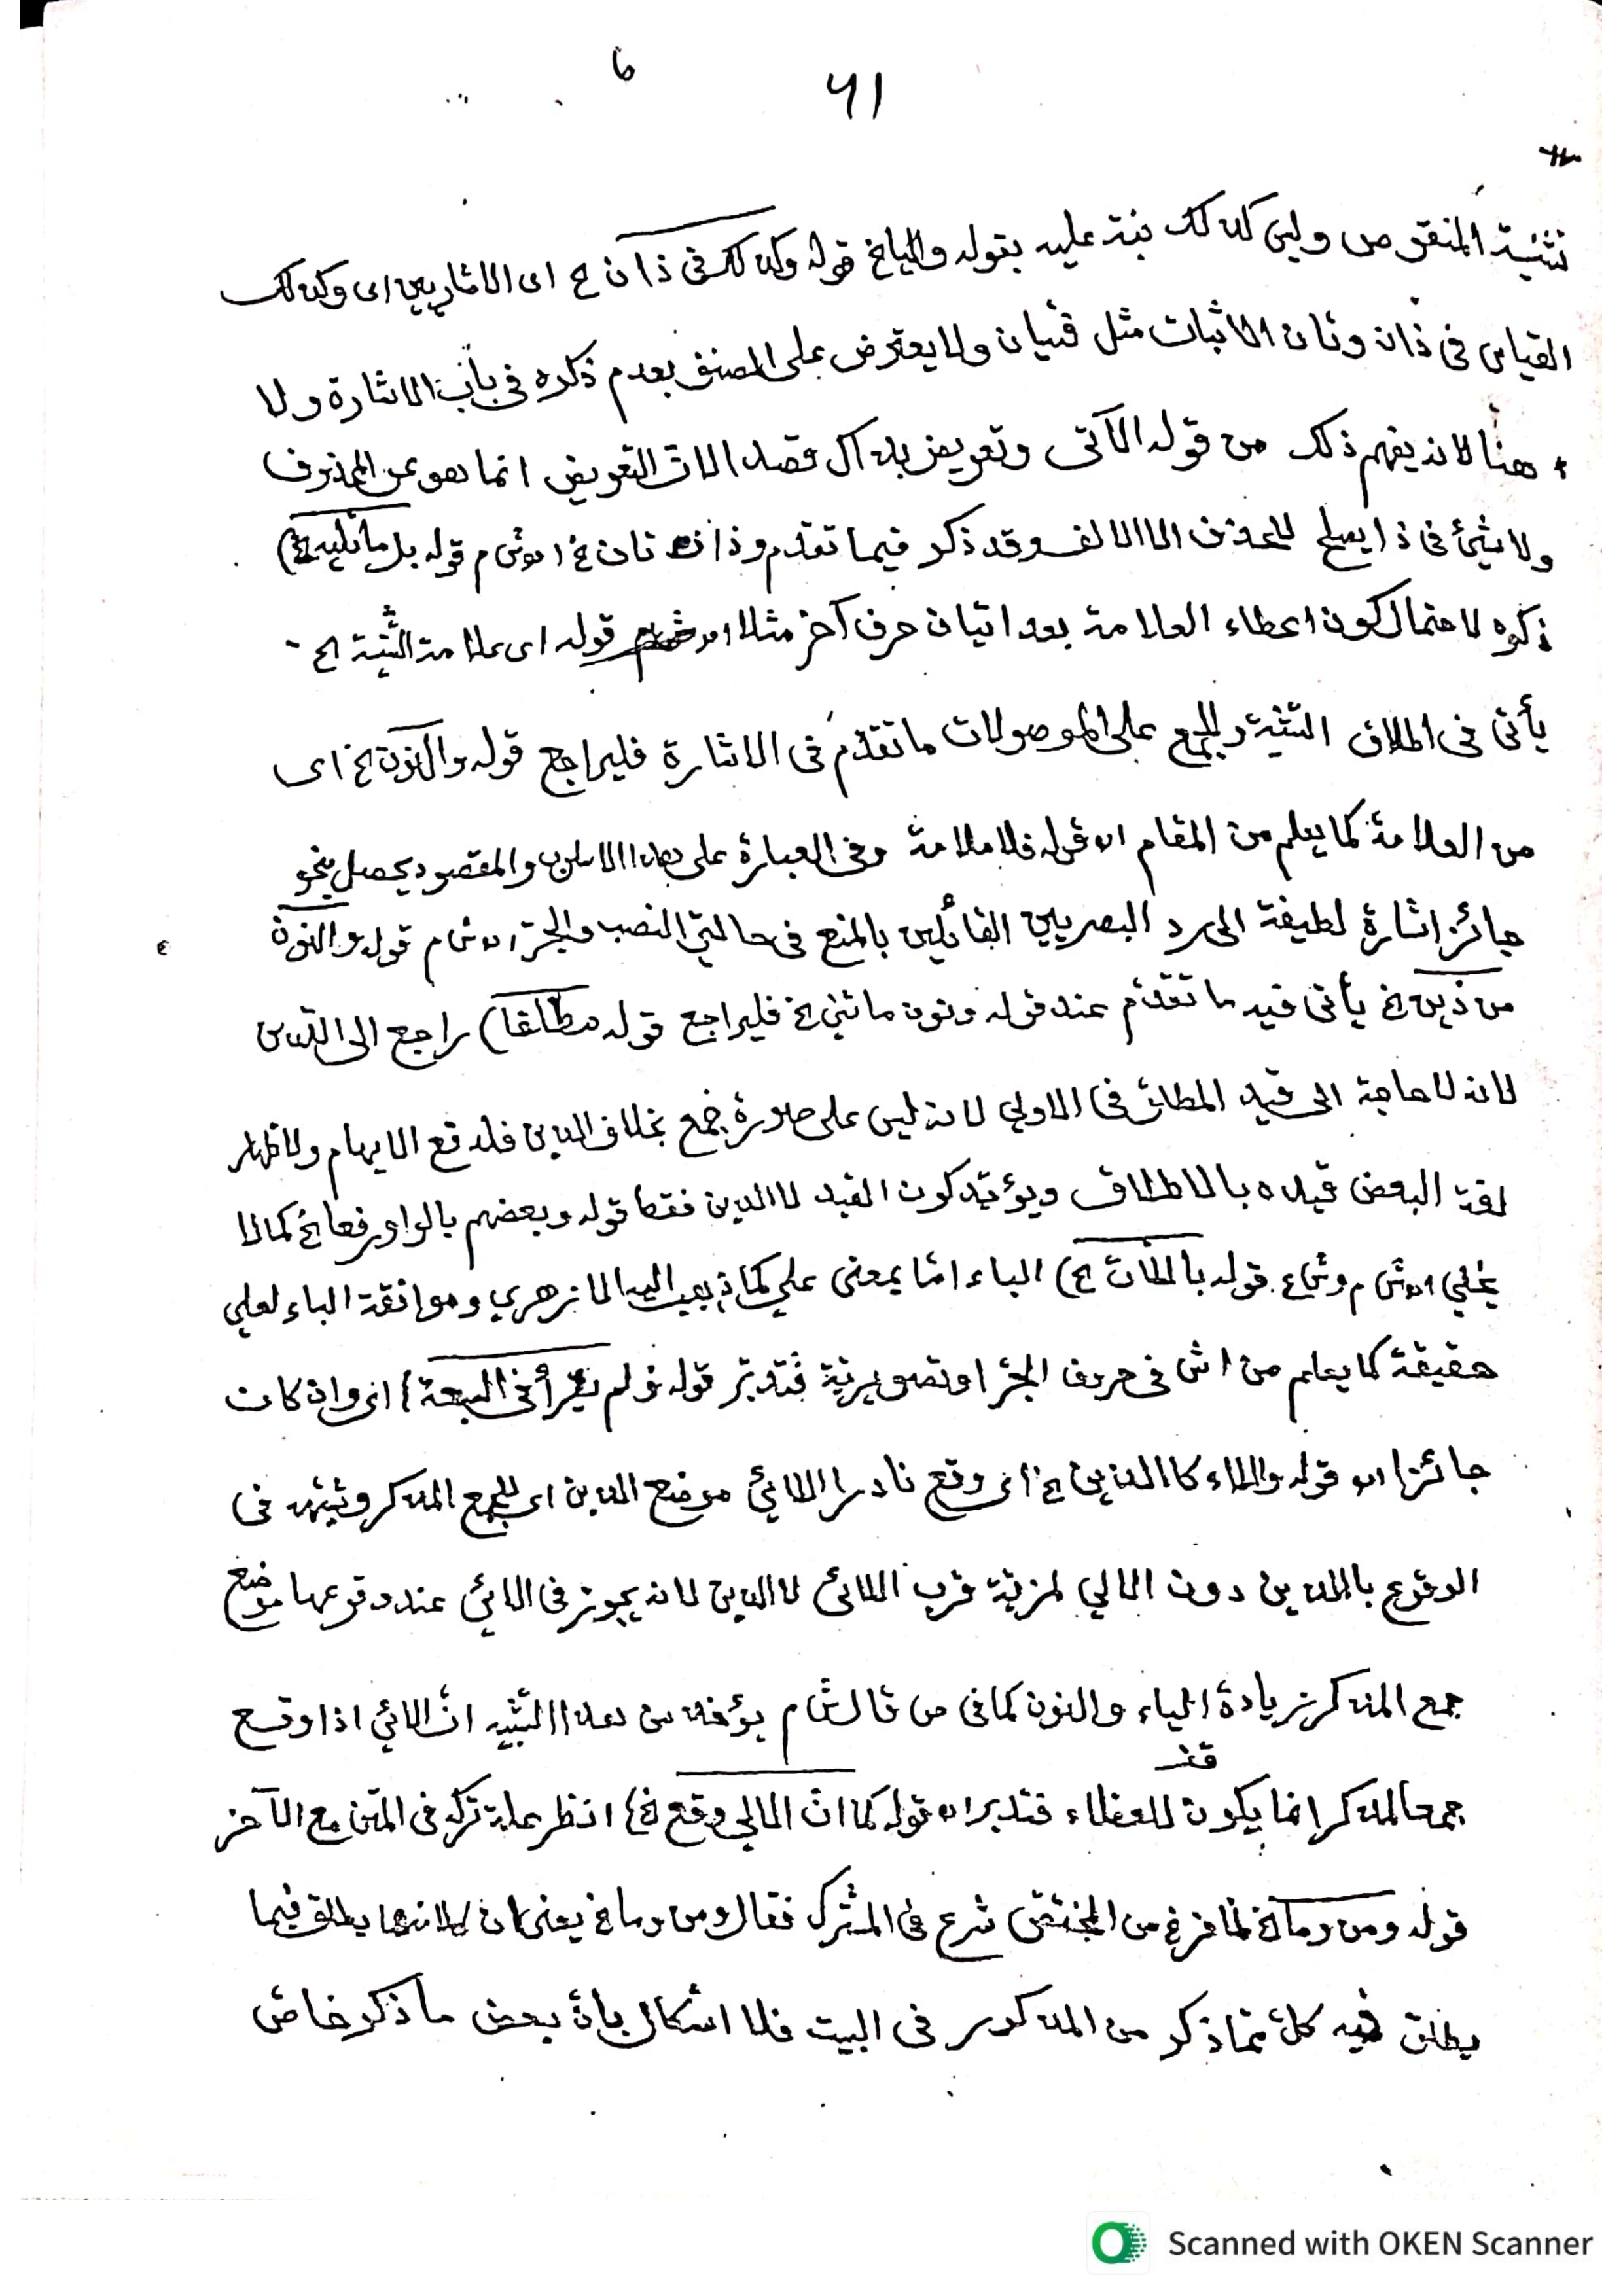 6
٦١
تثنية المنقوص وليس كذلك نبه عليه بقوله واليا الخ قوله وكذلك في ذان الخ اى الاشاريين اى وكذلك
القياس فى ذان وتان الاثبات مثل فتيان ولا يعترض على المصنف بعدم ذكره في باب الاشارة ولا
هنا لانه يفهم ذلك من قوله الآتى وتعويض بذاك قصدا لان التعويض انما هو عن المحذوف
ولا شئ فى ذا يصلح للحذف الا الالف وقد ذكر فيما تقدم وذان تان الخ اه ش م قوله بل ما تليه الخ)
ذكره لاحتمال كون اعطاء العلامة بعد اتيان حرف آخر مثلا اه قوله اى علامة التثنية الخ
يأتى فى اطلاق التثنية والجمع على الموصولات ما تقدم فى الاشارة فليراجع قوله والنون الخ اى
من العلامة كما يعلم من المقام اه قوله فلا ملامة وفى العبارة على هذا الاسلوب والمقصود يحصل بنحو
جائز اشارة لطيفة الى رد البصريين القائلين بالمنع فى حالتي النصب والجر اه ش م قوله والنون
من ذين الخ يأتى فيه ما تقدم عند قوله ونون ما ثني الخ فليراجع قوله مطلقا) راجع الى الذين
لانه لا حاجة الى قيد المطلق فى الاولى لانه ليس على صورة جمع بخلاف الذين فلدفع الايهام ولاظهار
لغة البعض قيده بالاطلاق ويؤيد كون القيد للذين فقط قوله وبعضهم بالواو رفعا الخ كما لا
يخفي اه ش م وش ع قوله باللات الخ) الباء امّا بمعنى علي كما ذهب اليه الازهري وموافقة الباء لعلي
حقيقة كما يعلم من اش فى حروف الجر او تصويرية فتدبر قوله ولم يقرأ في السبعة) اى وان كان
جائزا اه قوله واللاء كالذين الخ اى وقع نادرا اللائي موضع الذين اى للجمع المذكر وشبه فى
الوقوع بالذين دون الالي لمزية قرب اللائى للذين لانه يجوز فى اللائي عند وقوعها موضع
جمع المذكر زيادة الياء والنون كما فى ص قال ش م يؤخذ من هذا التشبيه انّ اللائي اذا وقع
جمعا لمذكر انما يكون للعقلاء فتدبر اه قوله كما ان الالي وقع الخ) انظر علة تركه فى المتن مع الآخر
قوله ومن وما الخ لما فرغ من المختص شرع فى المشترك فقال ومن وما الخ يعنى ان يطلق فيما
يطلق فيه كلّ ممّا ذكر من المذكور فى البيت فلا اشكال بأن بعض ما ذكر خاص
Scanned with OKEN Scanner